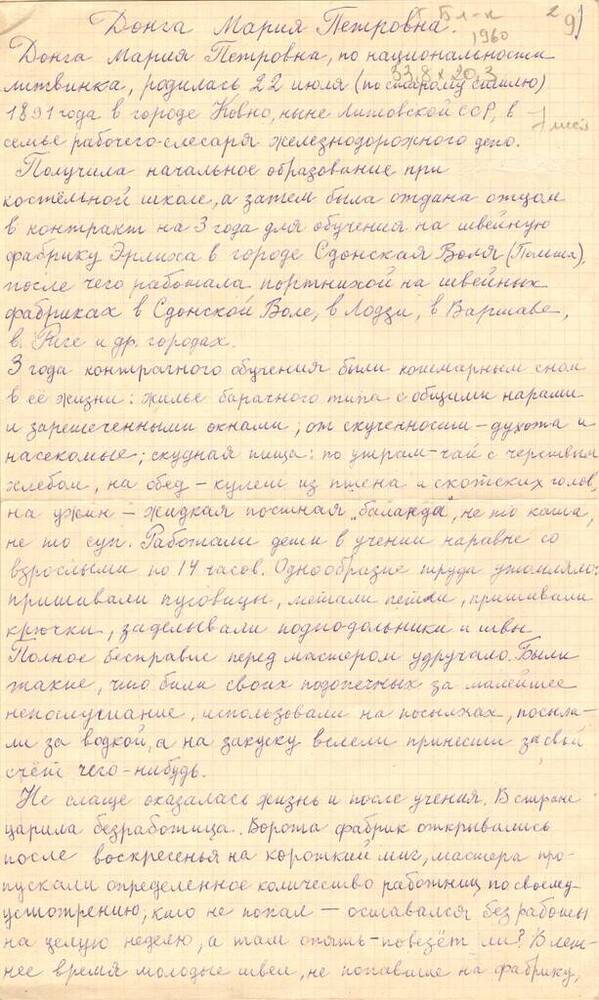 Донга Мария Петровна.
Бл-к 1960
33,8 х 20,3
2 9)
Донга Мария Петровна, по национальности
литвинка, родилась 22 июля (по старому стилю)
1891 года в городе Ковно, ныне Литовской ССР, в
семье рабочего-слесаря железнодорожного депо.
Получила начальное образование при
костёльной школе, а затем была отдана отцом
в контракт на 3 года для обучения на швейную
фабрику Эрлиха в городе Сдонская Воля (Польша),
после чего работала портнихой на швейных
фабриках в Сдонской Воле, в Лодзи, в Варшаве,
в Риге и др. городах.
3 года контрактного обучения были кошмарным сном
в её жизни: жильё барачного типа с общими нарами
и зарешеченными окнами; от скученности - духота и
насекомые; скудная пища: по утрам - чай с черствым
хлебом, на обед - кулеш из пшена и скотских голов,
на ужин - жидкая постная "баланда", не то каша,
не то суп. Работали дети в учении наравне со
взрослыми по 14 часов. Однообразие труда утомляло:
пришивали пуговицы, метали петли, пришивали
крючки, заделывали подподольники и швы.
Полное бесправие перед мастером удручало. Были
такие, что били своих подопечных за малейшее
непослушание, использовали на посылках, посыла-
ли за водкой, а на закуску велели принести за свой
счёт чего-нибудь.
Не слаще оказалась жизнь и после учения. В стране
царила безработица. Ворота фабрик открывались
после воскресенья на короткий миг, мастера про-
пускали определенное количество работниц по своему
усмотрению, кто не попал - оставался без работы
на целую неделю, а там опять - повезёт ли? В лет-
нее время молодые швеи, не попавшие на фабрику,